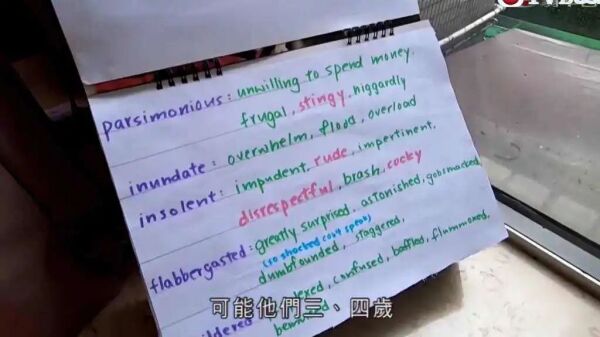 parsimonious: unwilling to spend money.
frugal, stingy, niggardly
inundate: overwhelm, flood, overload
insolent: impudent, rude, impertinent,
disrespectful, brash, cocky
flabbergasted: greatly surprised, astonished, gobsmacked
(so shocked can't speak)
dumbfounded, staggered,
confused, baffled, flummoxed,
可能他們三、四歲